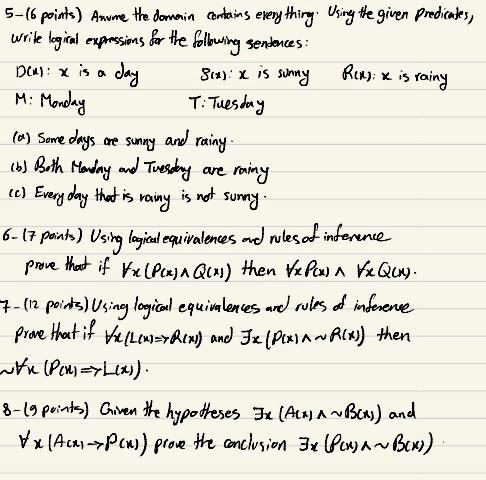 5-(6 points) Assume the domain contains everything. Using the given Predicates,
write logical expressions for the following sentences:
D(x): x is a day S(x): x is sunny R(x): x is rainy
M: Monday T: Tuesday
(a) Some days are sunny and rainy.
(b) Both Monday and Tuesday are rainy
(c) Every day that is rainy is not sunny.
6-(7 points) Using logical equivalences and rules of inference
prove that if ∀x (P(x) ∧ Q(x)) then ∀x P(x) ∧ ∀x Q(x).
7-(12 points) Using logical equivalences and rules of inference
Prove that if ∀x (L(x) => R(x)) and ∃x (P(x) ∧ ~R(x)) then
~∀x (P(x) => L(x)).
8-(9 points) Given the hypotheses ∃x (A(x) ∧ ~B(x)) and
∀x (A(x) → P(x)) prove the conclusion ∃x (P(x) ∧ ~B(x)).